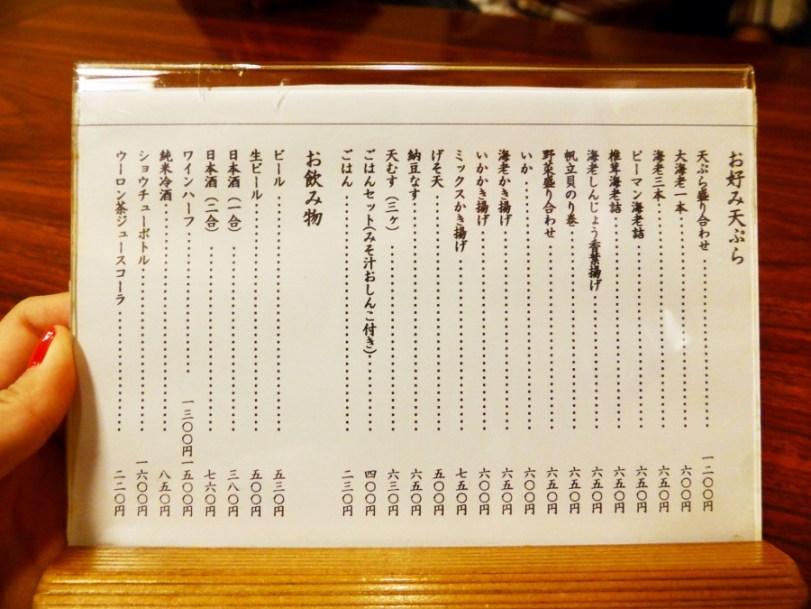 お好み天ぷら
天ぷら盛り合わせ‥‥‥‥‥‥‥‥一二〇〇円
大海老一本‥‥‥‥‥‥‥‥六〇〇円
海老三本‥‥‥‥‥‥‥‥六五〇円
ピーマン海老詰‥‥‥‥‥‥‥‥六五〇円
椎茸海老詰‥‥‥‥‥‥‥‥六五〇円
海老しんじょう香葉揚げ‥‥‥‥‥‥‥‥六五〇円
帆立貝のり巻‥‥‥‥‥‥‥‥六五〇円
野菜盛り合わせ‥‥‥‥‥‥‥‥六五〇円
いか‥‥‥‥‥‥‥‥六〇〇円
海老かき揚げ‥‥‥‥‥‥‥‥六五〇円
いかかき揚げ‥‥‥‥‥‥‥‥六〇〇円
ミックスかき揚げ‥‥‥‥‥‥‥‥七五〇円
げそ天‥‥‥‥‥‥‥‥五〇〇円
納豆なす‥‥‥‥‥‥‥‥六五〇円
天むす(三ヶ)‥‥‥‥‥‥‥‥六三〇円
ごはんセット(みそ汁おしんこ付き)‥‥‥‥四〇〇円
ごはん‥‥‥‥‥‥‥‥二三〇円
お飲み物
ビール‥‥‥‥‥‥‥‥五三〇円
生ビール‥‥‥‥‥‥‥‥五〇〇円
日本酒(一合)‥‥‥‥‥‥‥‥三八〇円
日本酒(二合)‥‥‥‥‥‥‥‥七六〇円
ワインハーフ‥‥‥‥‥‥‥‥一三〇〇円一五〇〇円
純米冷酒‥‥‥‥‥‥‥‥八五〇円
ショウチューボトル‥‥‥‥‥‥‥‥一六〇〇円
ウーロン茶ジュースコーラ‥‥‥‥‥‥‥‥二二〇円